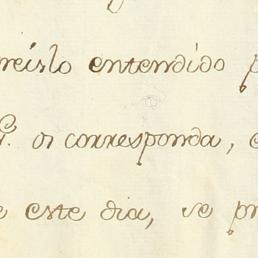 reislo entendido p
G. os corresponda, c
e este dia, se pr